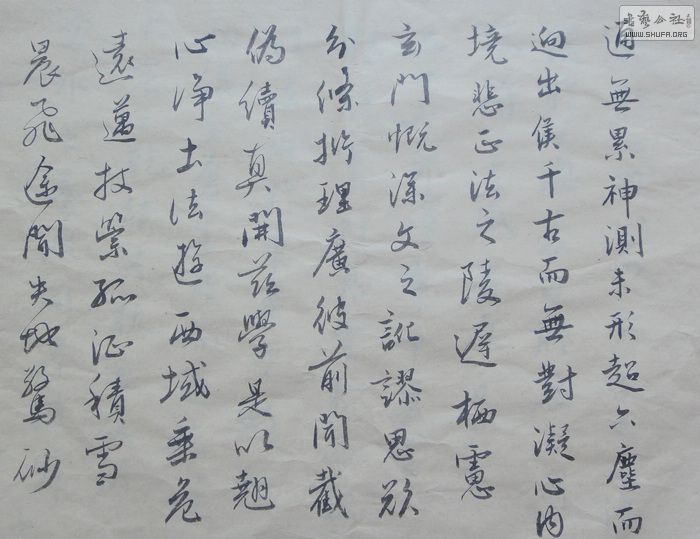 通無累神測未形超六塵而
迥出隻千古而無對凝心內
境悲正法之陵遲栖慮
玄門慨深文之訛謬思欲
分條析理廣彼前聞截
偽續真開茲學是以翹
心淨土法遊西域乘危
遠邁杖策孤征積雪
晨飛途間失地驚砂
書藝公社
WWW.SHUFA.ORG